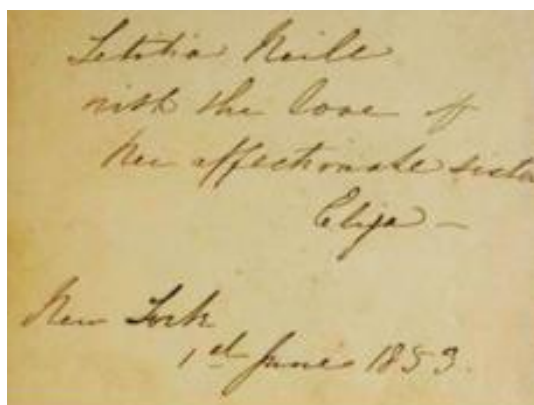 Letitia Neile
with the love of
her affectionate sister
Eliza —
New York
1st June 1853.